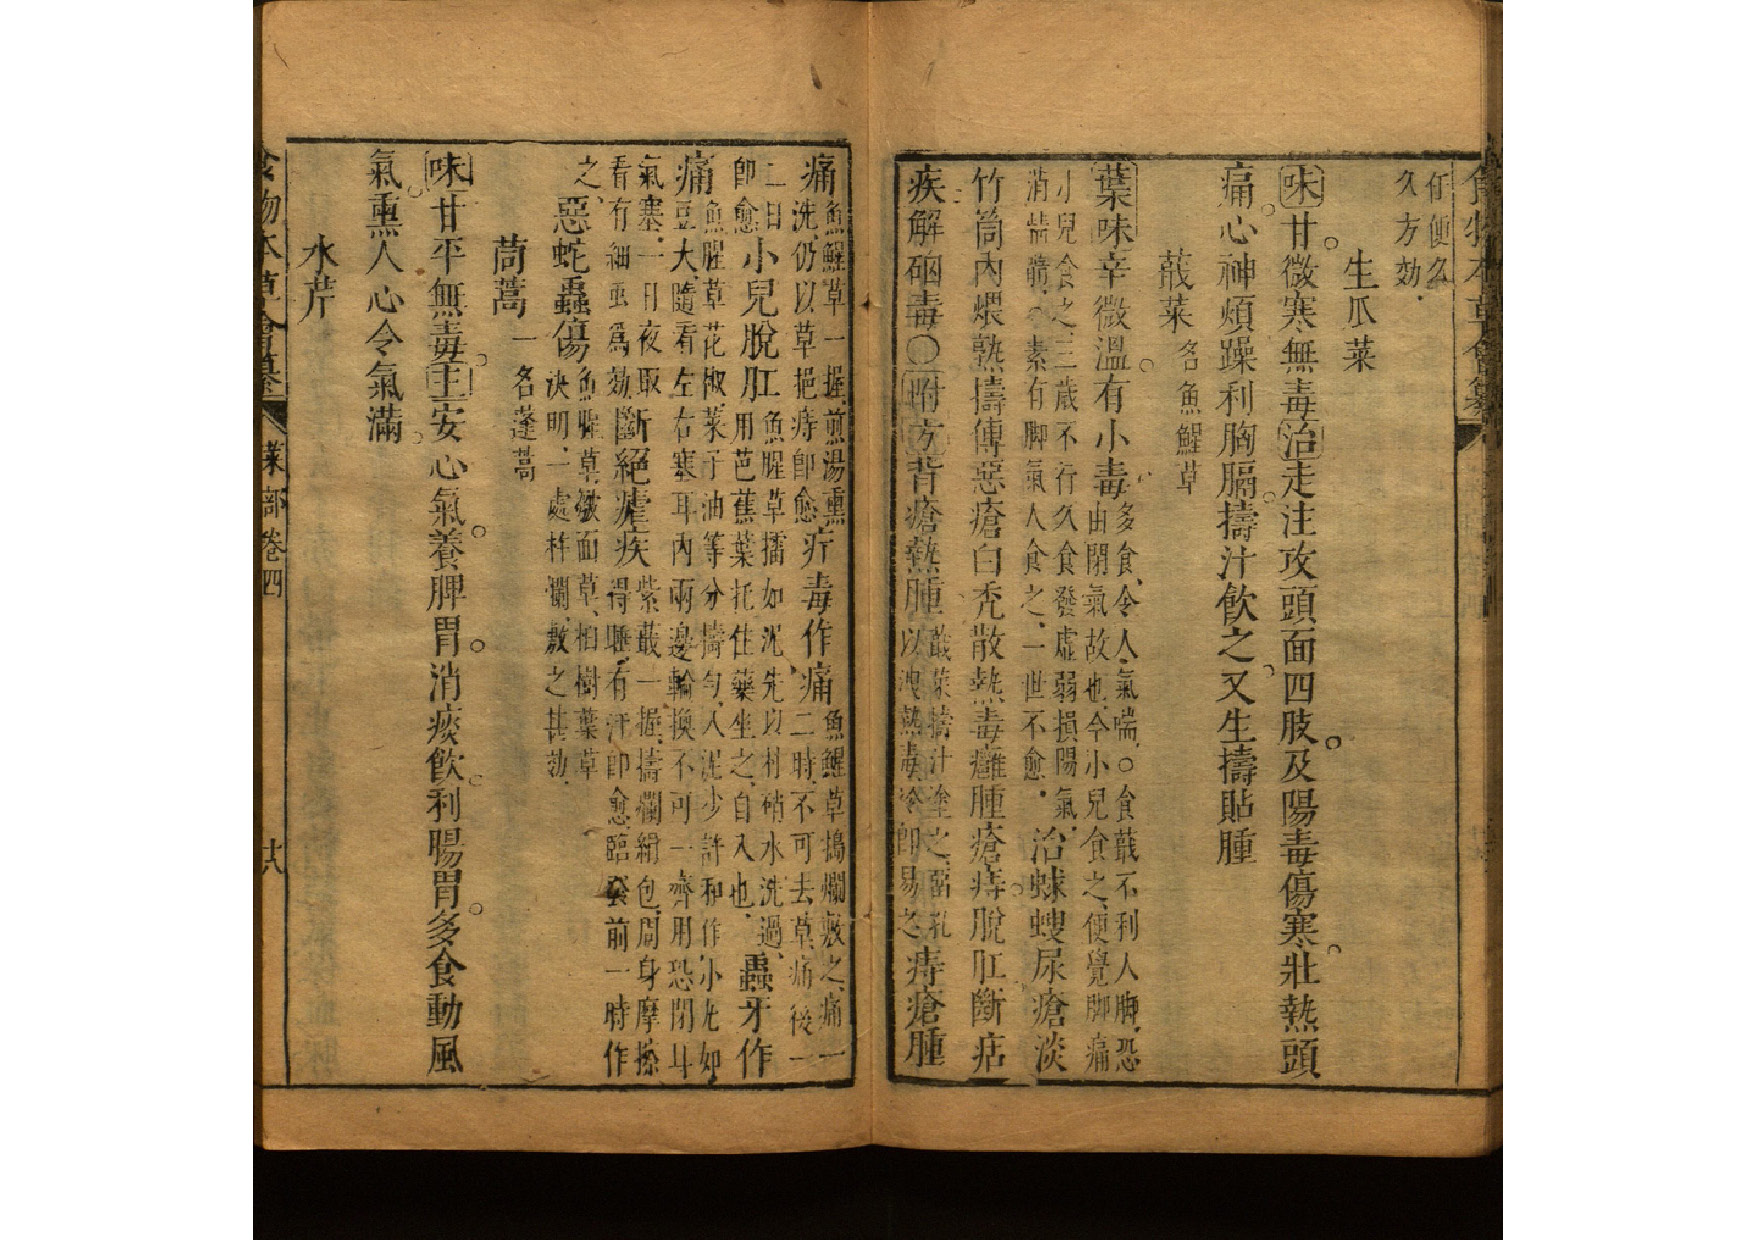 仔便么
久方効
生瓜菜
味甘微寒無毒治走注攻頭面四肢及陽毒傷寒壯熱頭
痛心神煩躁利胸膈擣汁飲之又生擣貼腫
蕺菜名魚鯹草
葉味辛微溫有小毒多食令人氣喘○食蕺不利人脚恐
由閉氣故也今小兒食之便覺脚痛
小兒食之三歲不行久食發虛弱損陽氣
消精髓素有脚氣人食之一世不愈治蛷螋尿瘡淡
竹筒內煨熟擣傅惡瘡白禿散熱毒癰腫瘡痔脫肛斷痁
疾解硇毒○附方背瘡熱腫蕺菜擣汁塗之留孔
以洩熱毒冷卽易之痔瘡腫
痛魚鯹草一握煎湯熏
洗仍以草挹痔卽愈疔毒作痛魚鯹草搗爛敷之痛一
二時不可去草痛後一
二日卽愈小兒脫肛魚腥草擂如泥先以朴硝水洗過
用芭蕉葉托住藥坐之自入也蟲牙作
痛魚腥草花椒菜子油等分擣勻入泥少許和作小丸如
豆大隨看左右塞耳內兩邊輪換不可一齊用恐閉耳
氣塞一日夜取
看有細虫爲効斷絕瘧疾紫蕺一握擣爛絹包周身摩擦
得睡有汗卽愈臨發前一時作
之惡蛇蟲傷魚腥草皺面草柏樹葉草
决明一處杵爛敷之甚効
茼蒿一名蓬蒿
味甘平無毒主安心氣養脾胃消痰飲利腸胃多食動風
氣熏人心令氣滿
水芹
食物本草會纂 菜部卷四 廿八